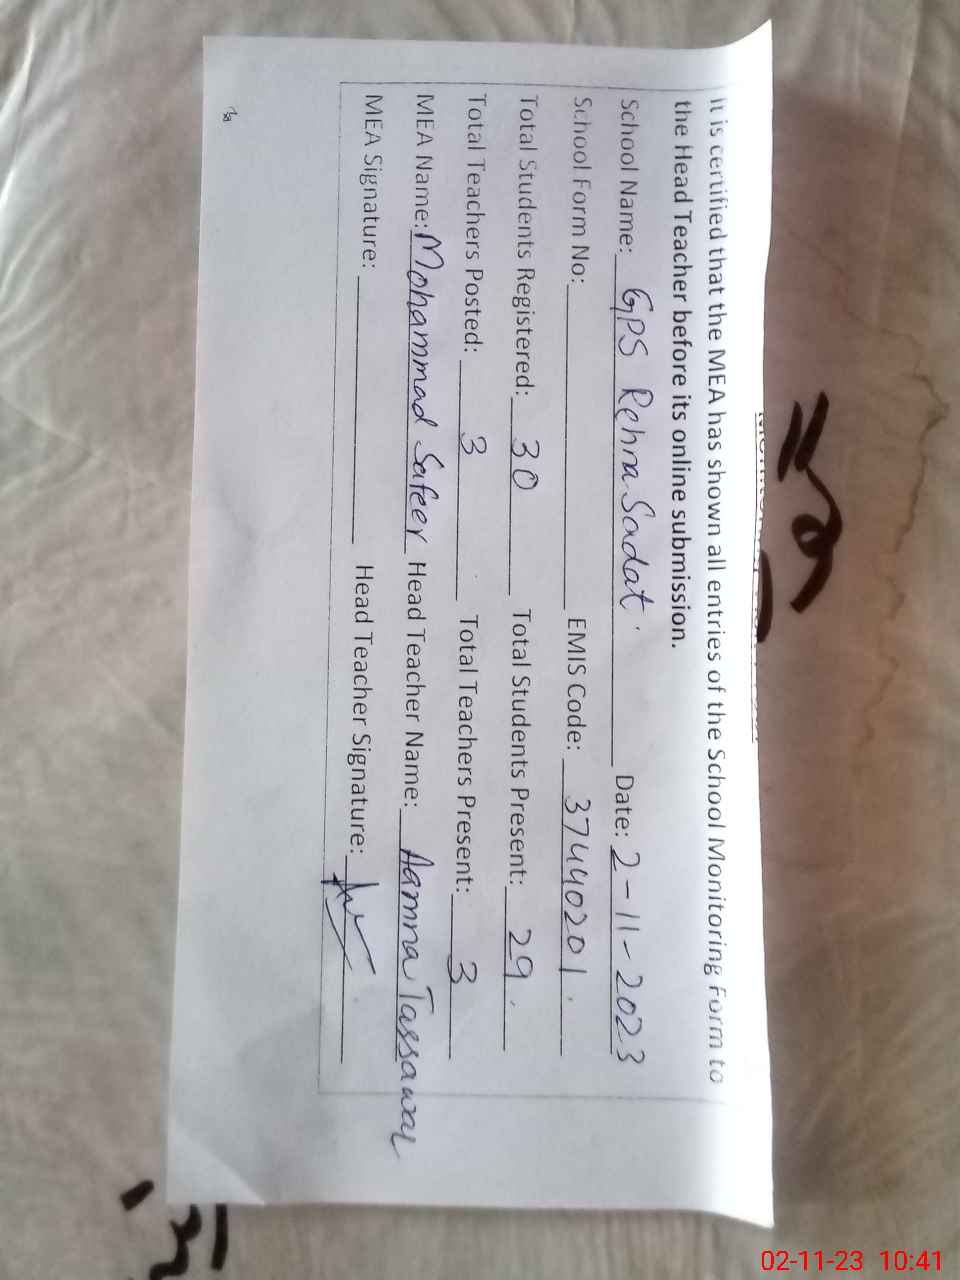 It is certified that the MEA has shown all entries of the School Monitoring Form to
the Head Teacher before its online submission.
School Name: GPS Rehna Sadat. Date: 2-11-2023
School Form No: EMIS Code: 37440201.
Total Students Registered: 30 Total Students Present: 29.
Total Teachers Posted: 3 Total Teachers Present: 3
MEA Name: Mohammad Safeer Head Teacher Name: Aamna Tassawar
MEA Signature: Head Teacher Signature:
02-11-23 10:41